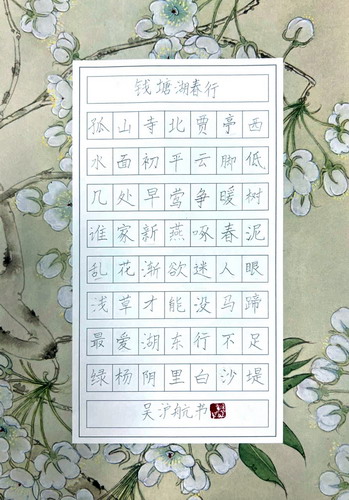 钱塘湖春行
孤山寺北贾亭西
水面初平云脚低
几处早莺争暖树
谁家新燕啄春泥
乱花渐欲迷人眼
浅草才能没马蹄
最爱湖东行不足
绿杨阴里白沙堤
吴沪航书